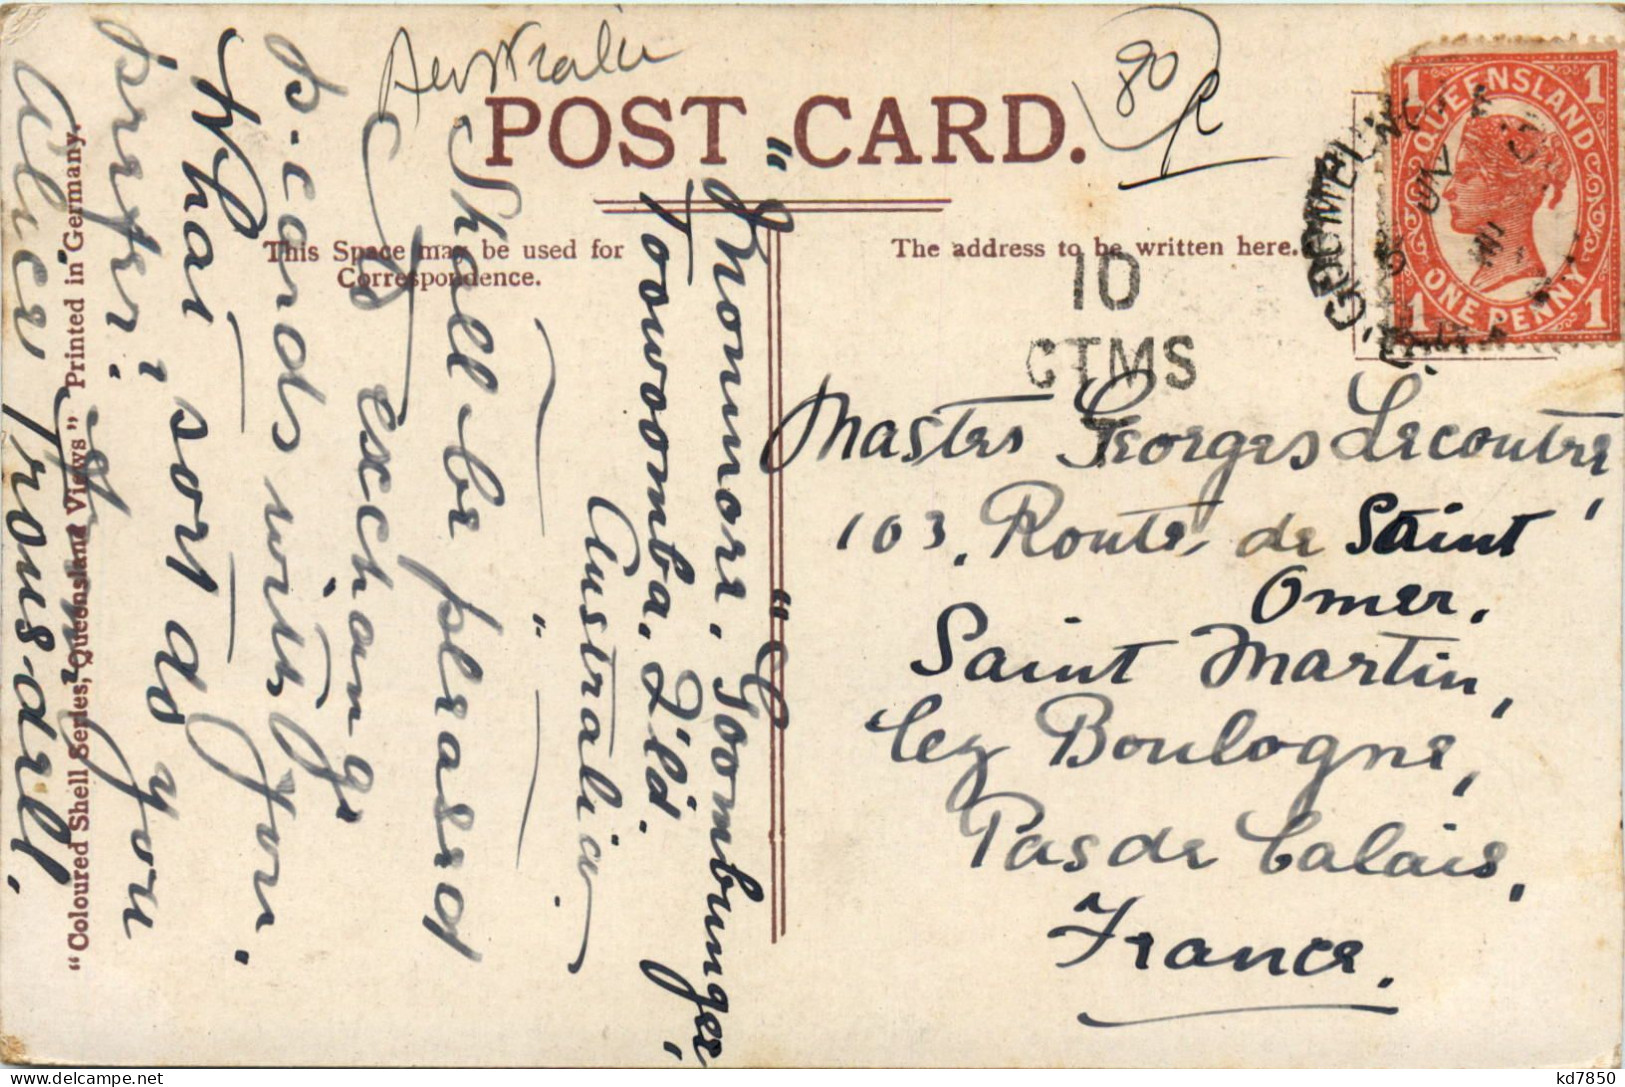 Australie
POST CARD.
80
This Space may be used for
Correspondence.
The address to be written here.
10
CTMS
QUEENSLAND
ONE PENNY
1
1
1
1
"Monmore," Goombungee,
Toowoomba, Q'ld.
Australia
Shall be pleased
to exchange
p-cards with you.
What sort do you
prefer?
Alice Trousdell.
"Coloured Shell Series, Queensland Views" Printed in Germany.
Master Georges Lecoutre,
103, Route de Saint
Omer.
Saint Martin,
lez Boulogne,
Pas de Calais,
France.
kd7850